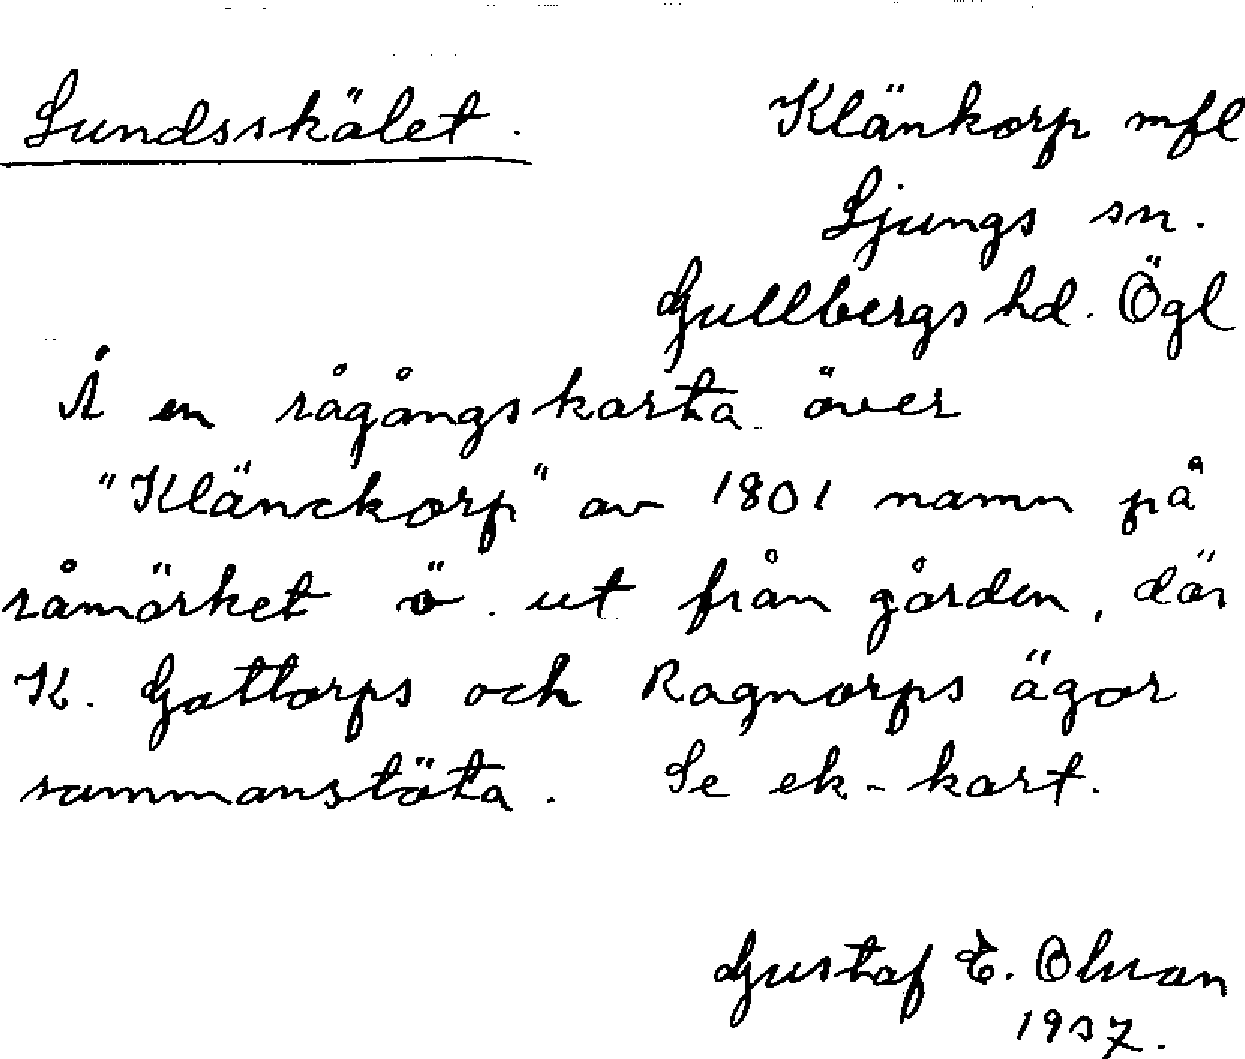 Lundsskälet. Klänkorp mfl
Ljungs sn.
Gullbergs hd. Ögl
Å en rågångskarta över
"Klänckorp" av 1801 namn på
råmörket ö. ut från gården, där
K. Gattorps och Ragnorps ägor
sammanstöta. Se ek-kart.
Gustaf E. Olsson
1937.